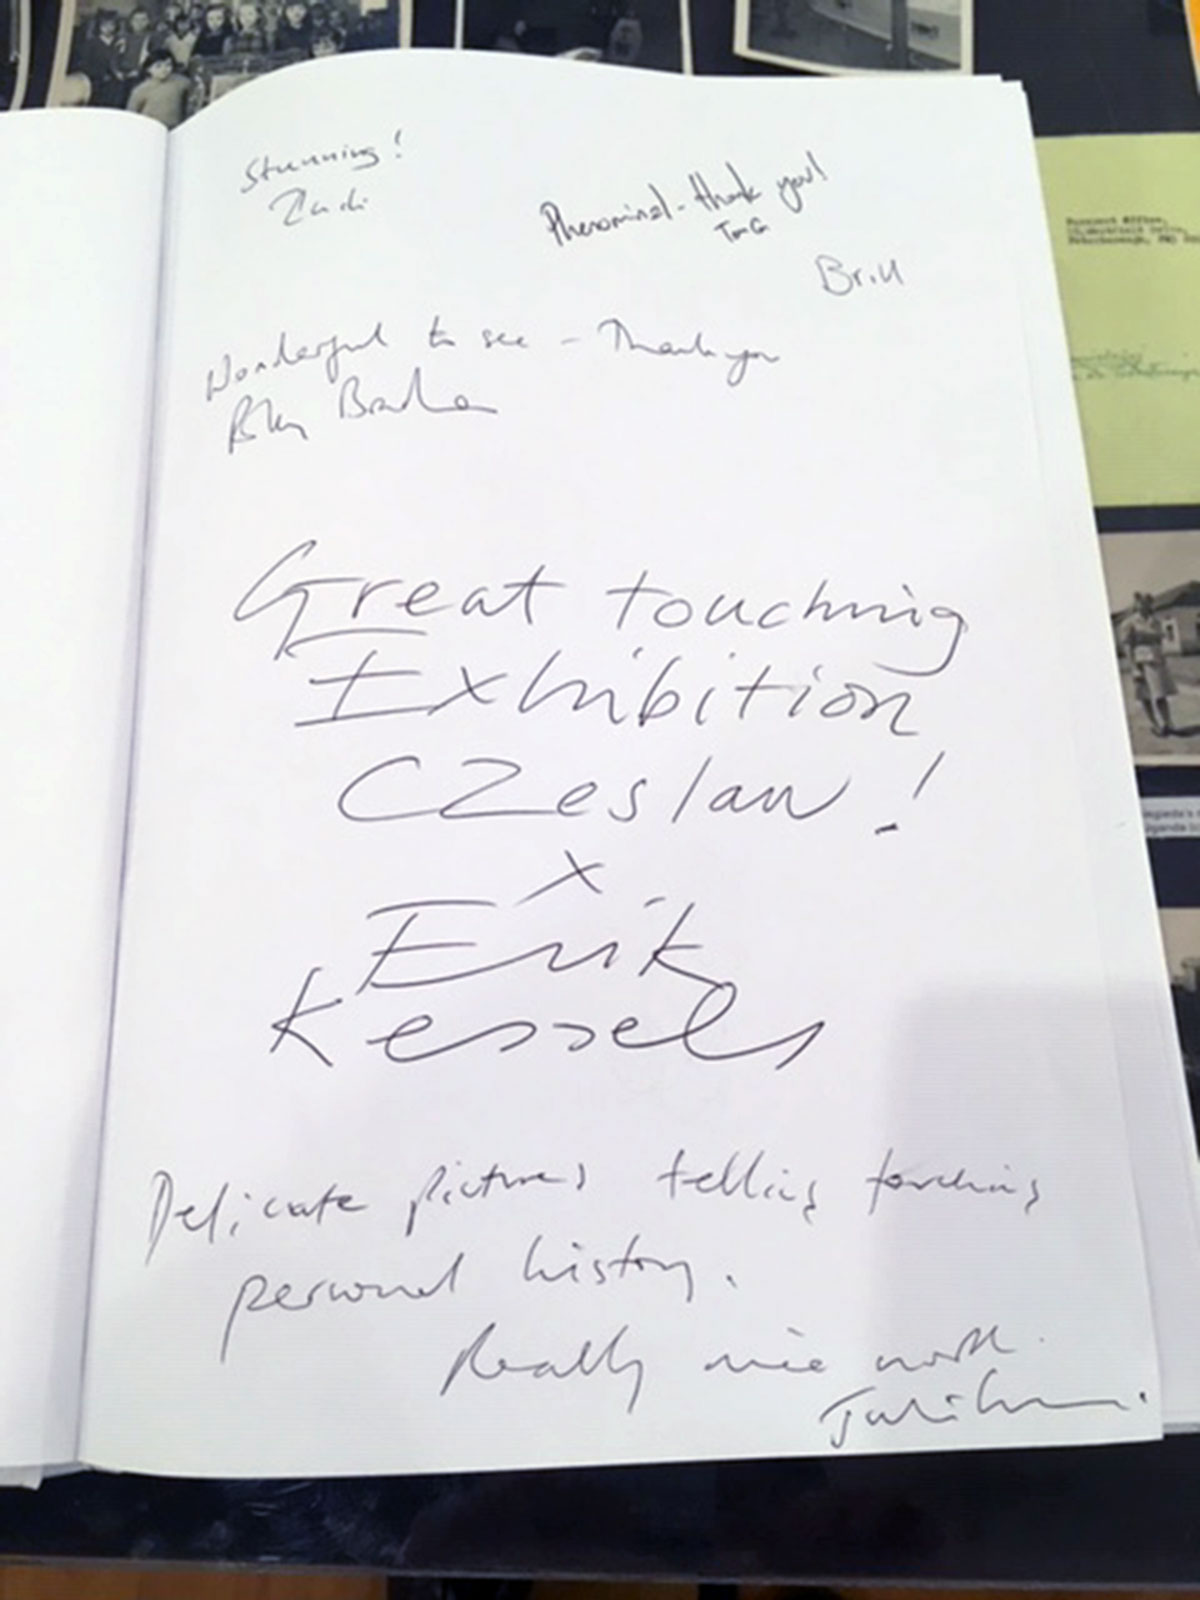 Stunning!
Phenominal - thank you!
Tom G
Brill
Wonderful to see - Thank you
Great touching
Exhibition
Czeslaw!
x
Erik
Kessels
Delicate pictures telling touching
personal history.
Really nice work.
Passport Office,
Peterborough,